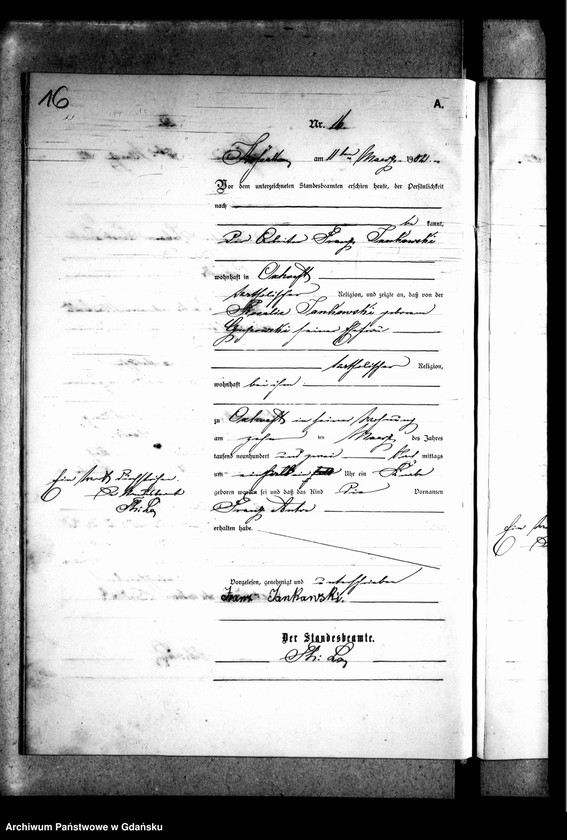 16
A.
Nr. 16
am 11ten März 1902.
Vor dem unterzeichneten Standesbeamten erschien heute, der Persönlichkeit
nach
be kannt,
Der Arbeiter Franz Jankowski
wohnhaft in
katholischer Religion, und zeigte an, daß von der
Rosalie Jankowski geborenen
seine Ehefrau
katholischer Religion,
wohnhaft bei ihm
zu in seiner Wohnung
am zehn ten März des Jahres
tausend neunhundert und zwei mittags
um Uhr ein Knabe
geboren worden sei und daß das Kind die Vornamen
Franz Anton
erhalten habe.
Ein Wort durchstrichen.
Der Standesbeamte
Vorgelesen, genehmigt und unterschrieben
Franz Jankowski.
Der Standesbeamte.
Archiwum Państwowe w Gdańsku